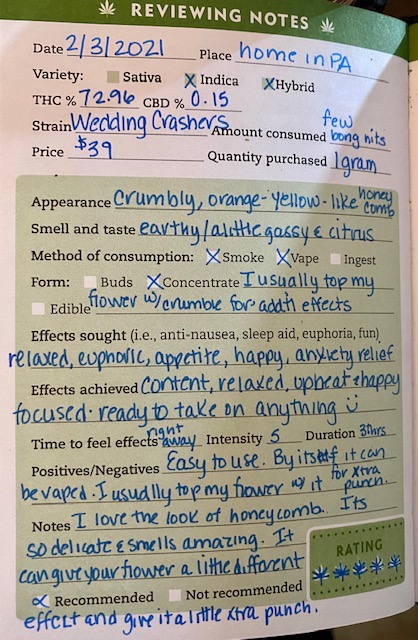 REVIEWING NOTES
Date 2/3/2021 Place home in PA
Variety: Sativa X Indica X Hybrid
THC % 72.96 CBD % 0.15
Strain Wedding Crashers Amount consumed few bong hits
Price $39 Quantity purchased 1gram
Appearance Crumbly, orange-yellow-like honey comb
Smell and taste earthy/alittle gassy & citrus
Method of consumption: X Smoke X Vape Ingest
Form: Buds X Concentrate I usually top my
Edible flower w/ crumble for addt'n effects
Effects sought (i.e., anti-nausea, sleep aid, euphoria, fun)
relaxed, euphoric, appetite, happy, anxiety relief
Effects achieved content, relaxed, upbeat & happy
focused. ready to take on anything
Time to feel effects right away Intensity 5 Duration 3hrs
Positives/Negatives Easy to use. By itself it can
be vaped. I usually top my flower w/ it for xtra punch.
Notes I love the look of honeycomb. Its
so delicate & smells amazing. It
can give your flower a little different
RATING
X Recommended Not recommended
effect and give it a little xtra punch.